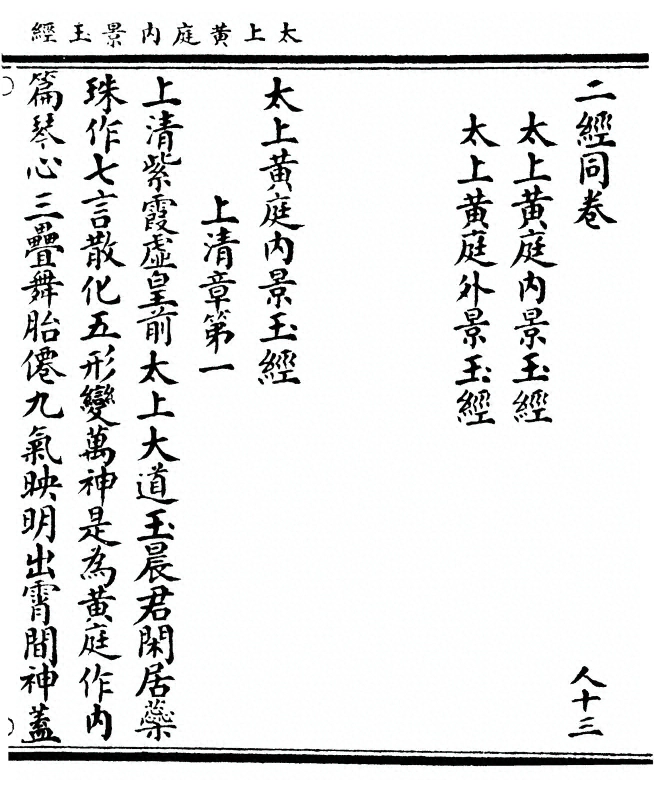 太上黃庭內景玉經
二經同卷
人十三
太上黃庭內景玉經
太上黃庭外景玉經
太上黃庭內景玉經
上清章第一
上清紫霞虛皇前太上大道玉晨君閑居蘂
珠作七言散化五形變萬神是為黃庭作內
篇琴心三疊舞胎僊九氣映明出霄間神蓋